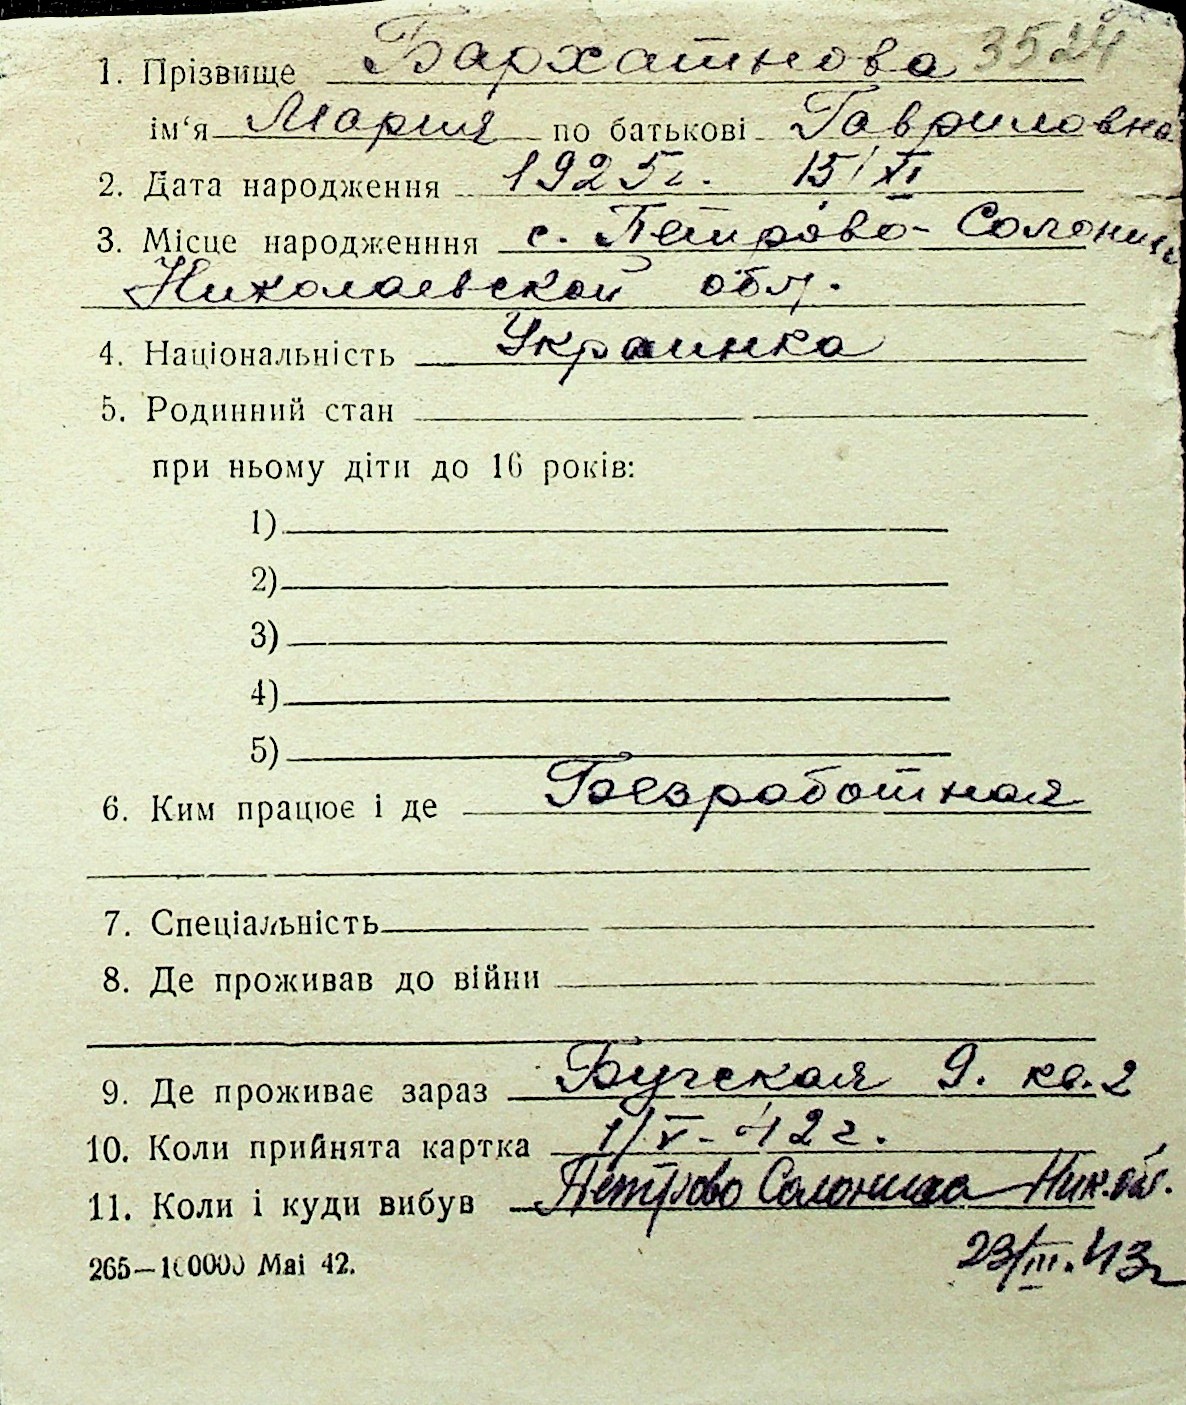 3524
1. Прізвище Бархатнова
ім‘я Мария по батькові Гавриловна
2. Дата народження 1925г. 15/XI
3. Місце народженння с. Петрово-Солониха
Николаевской обл.
4. Національність Украинка
5. Родинний стан
при ньому діти до 16 років:
1)
2)
3)
4)
5)
6. Ким працює і де Безработная
7. Спеціальність
8. Де проживав до війни
9. Де проживає зараз Бугская 9. кв. 2
10. Коли прийнята картка 1/V-42г.
11. Коли і куди вибув Петрово Солониха Ник. обл.
265—100000 Mai 42. 23/III.43г